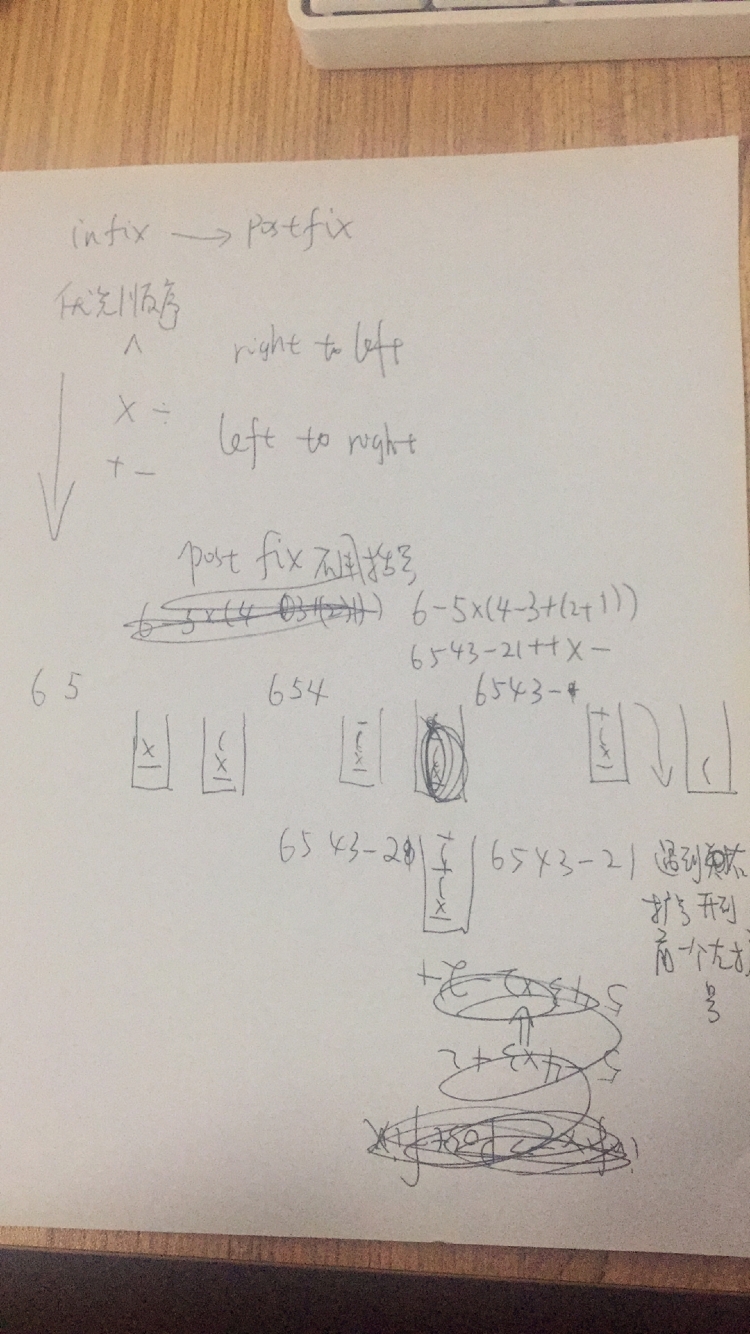 infix → postfix
优先顺序
^ right to left
× ÷
left to right
+ −
post fix 不用括号
6-5×(4-3+(2+1))
6543-21++×-
6 5
654
6543-
×
−
(
×
−
−
(
×
−
+
(
×
−
(
6543-2
+
(
+
(
×
−
6543-21
遇到右
括号 开到
前一个左括
号
5 4 3 × 2 - 2 +
5 - 4 × 3 + 2